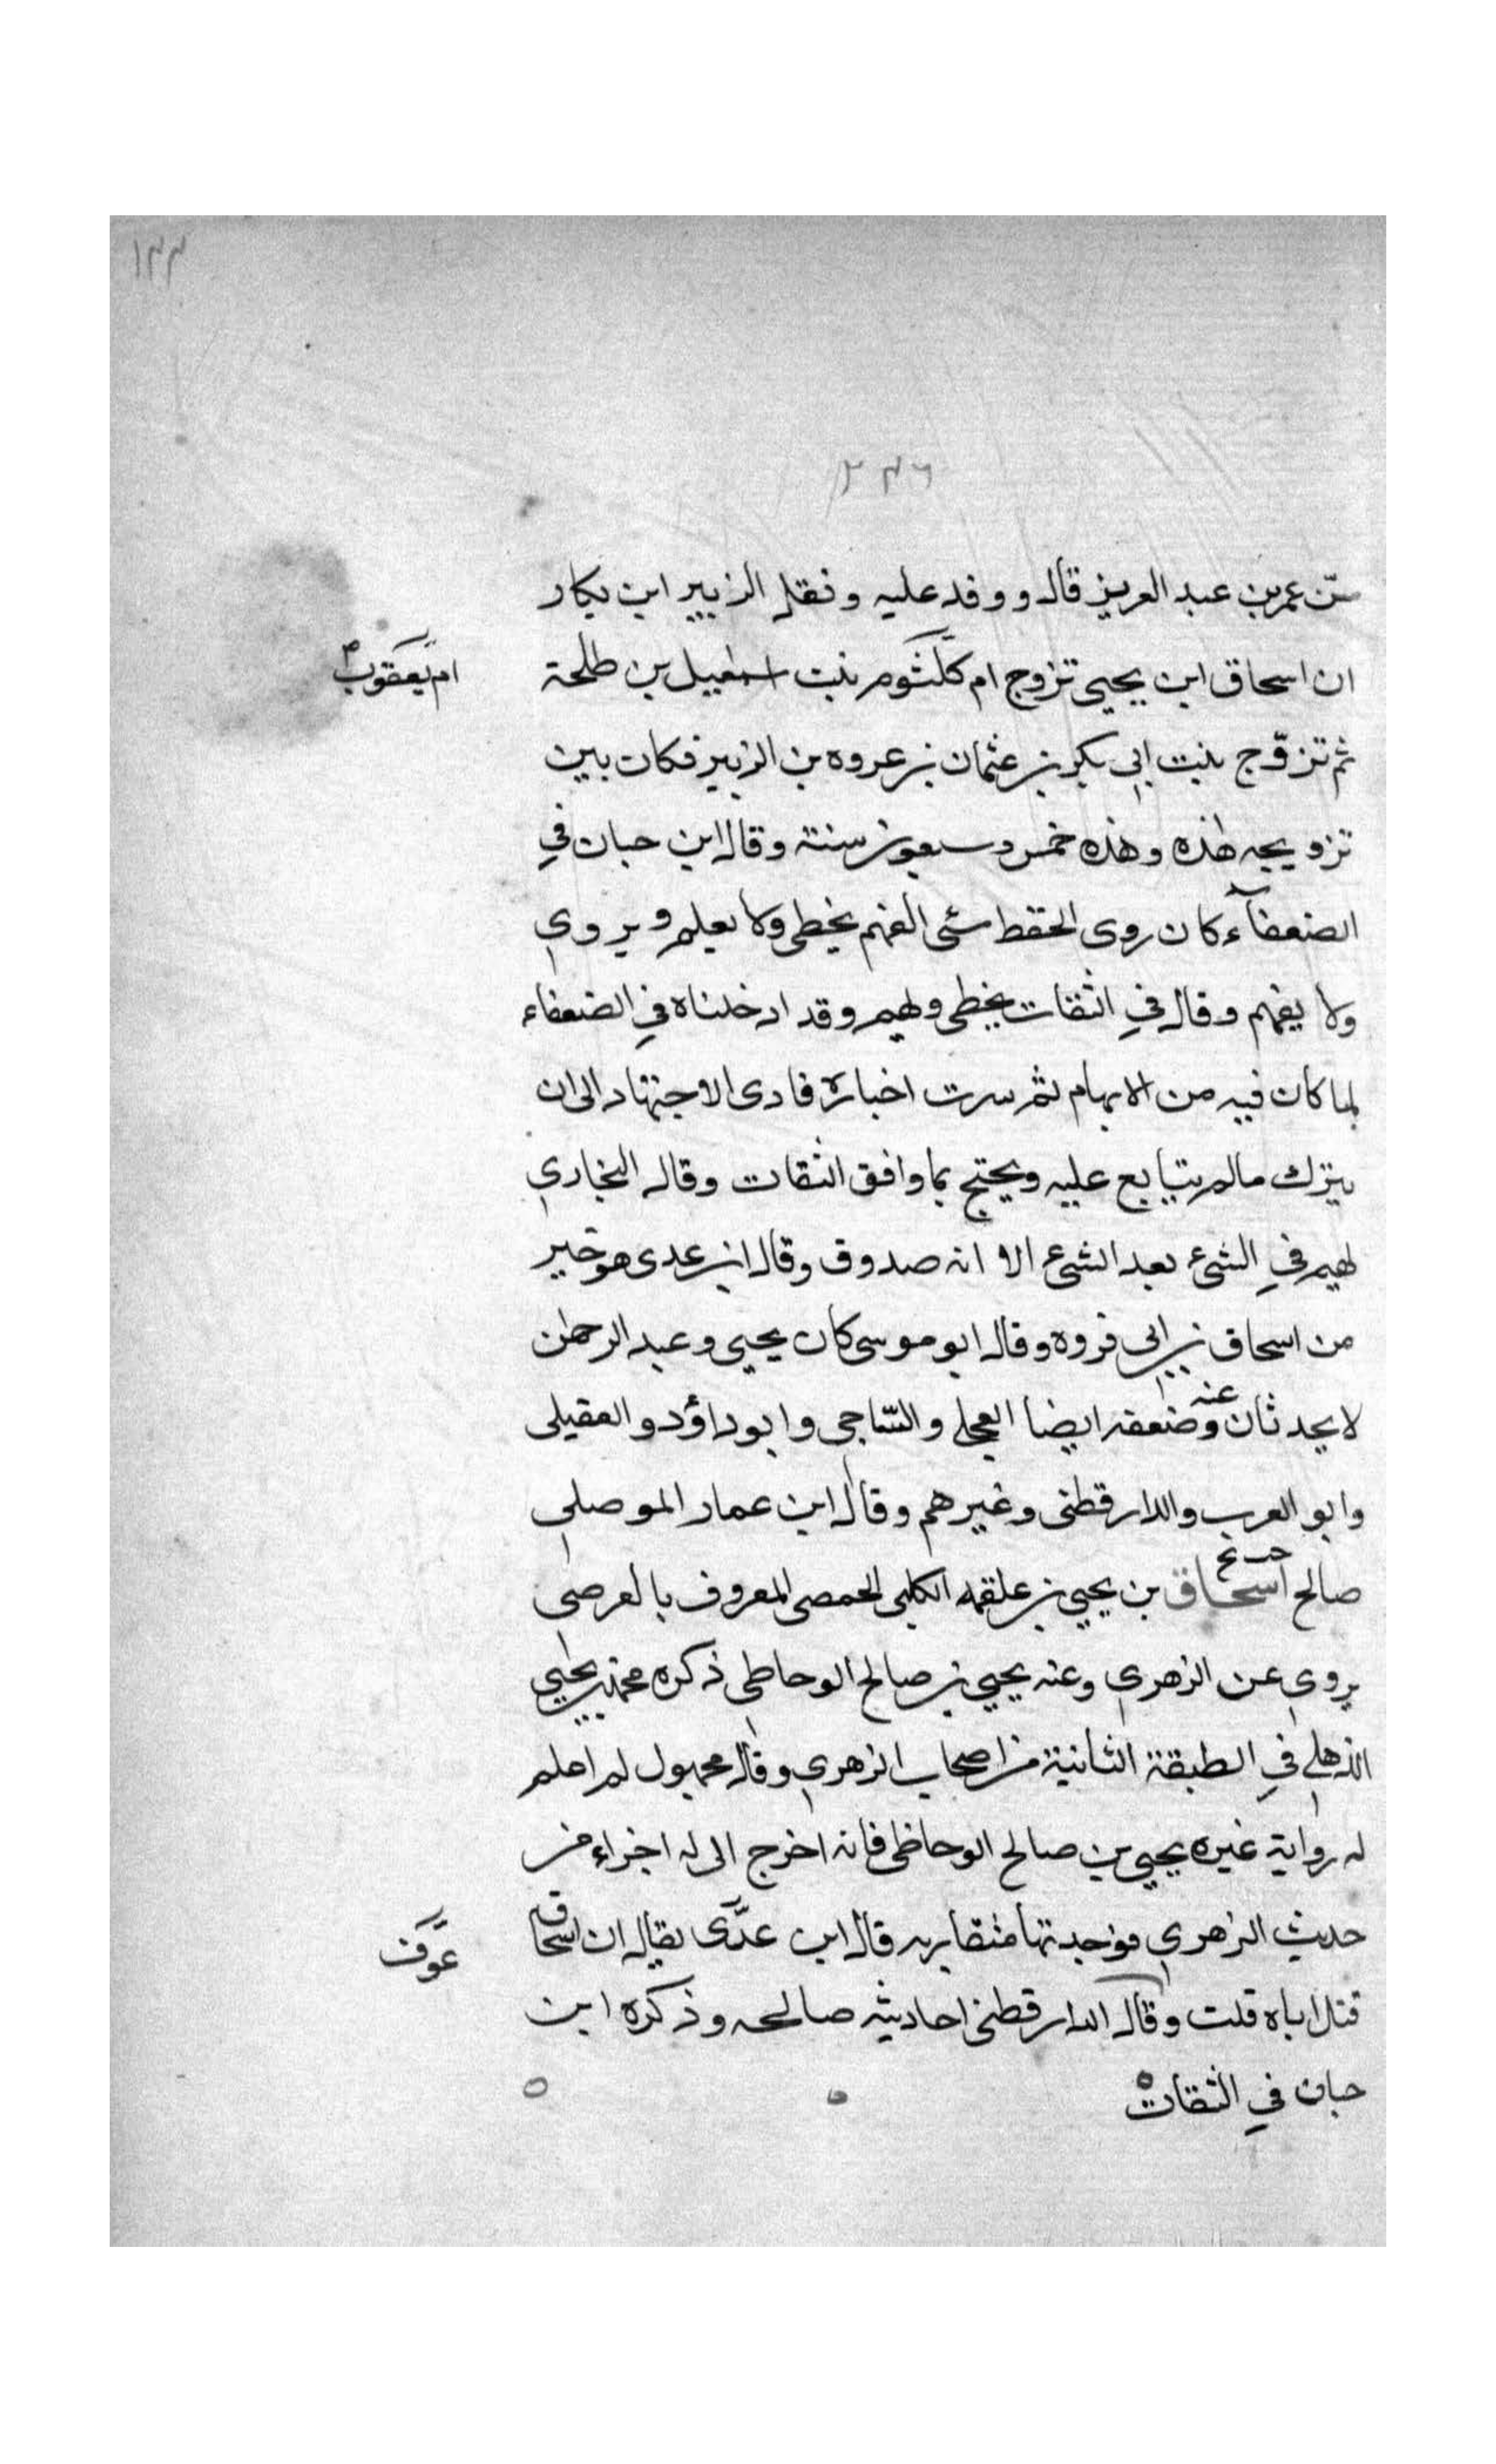 ١٢٣
٢٣٦
سن عمر بن عبد العزيز قال ووفد عليه ونقل الزبير ابن بكار
ان اسحاق ابن يحيى تزوج ام كلثوم بنت اسمعيل بن طلحة
ام يعقوب
ثم تزوّج بنت ابي بكر بن عثمان بن عروه بن الزبير فكان بين
تزويجه هذه وهذه خمس وسبعون سنة وقال ابن حبان في
الضعفآء كان روى الحفظ سئى الفهم يخطى ولا يعلم ويروي
ولا يفهم وقال في الثقات يخطى ويهم وقد ادخلناه في الضعفاء
لما كان فيه من الابهام ثم سرت اخباره فادى الاجتهاد الى ان
يترك مالم يتابع عليه ويحتج بما وافق الثقات وقال البخاري
يهم في الشئ بعد الشئ الا انه صدوق وقال ابن عدى هو خير
من اسحاق بن ابى فروه وقال ابو موسى كان يحيى وعبد الرحمٰن
لا يحدثان عنه وضعفه ايضا العجلى والسّاجى وابو داؤد والعقيلى
وابو العرب والدارقطنى وغيرهم وقال ابن عمار الموصلي
صالح اسحاق بن يحيى بن علقمه الكلبى الحمصى المعروف بالعرصى
خ خ
يروي عن الزهري وعنه يحيى بن صالح الوحاطى ذكره محمد بن يحيى
الذهلى في الطبقة الثانية من اصحاب الزهري وقال مجهول لم اعلم
له رواية غيره يحيى بن صالح الوحاظى فانه اخرج الى له اجزاء من
حديث الزهري فوجدتها متقاربه قال ابن عدّى يقال ان اسحاق
عوف
قتل اباه قلت وقال الدارقطنى احاديثه صالحه وذكره ابن
حبان في الثقات